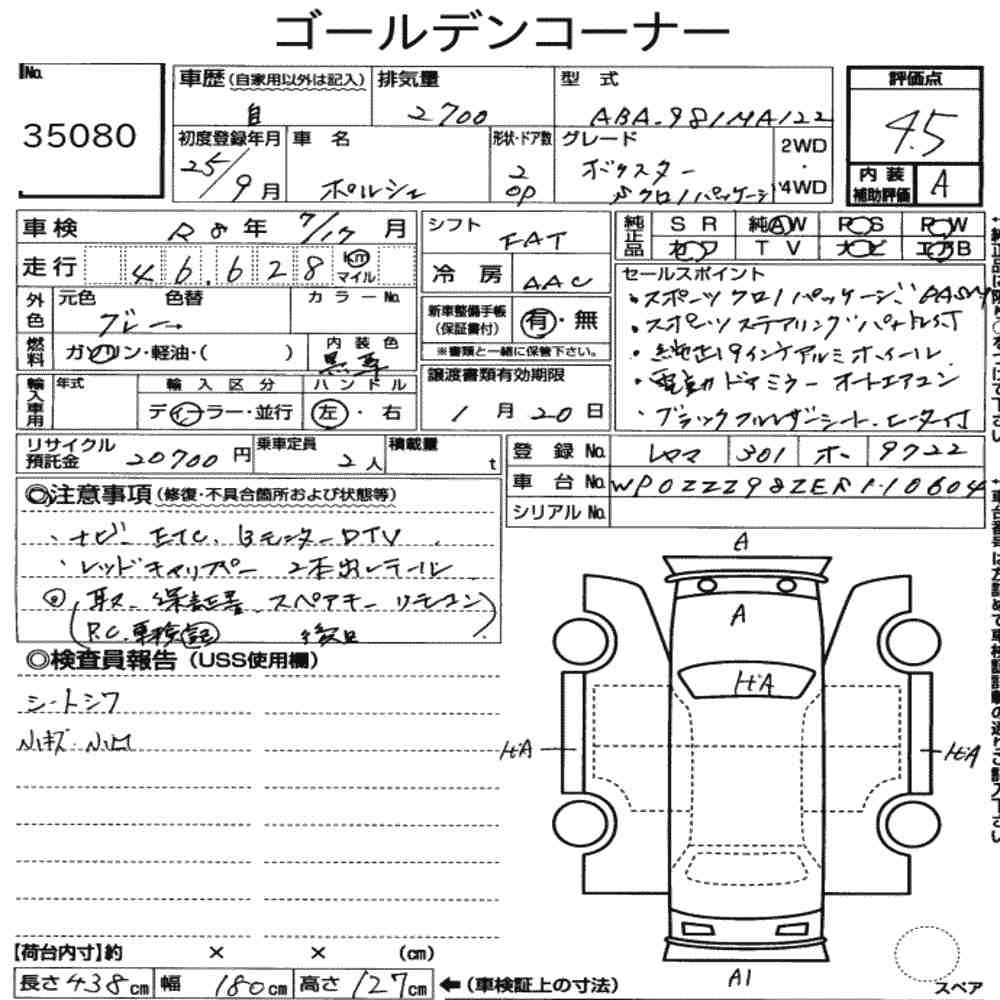 ゴールデンコーナー
No.
35080
車歴(自家用以外は記入)
自
排気量
2700
型 式
ABA-981MA122
評価点
4.5
内装補助評価
A
初度登録年月
25/9月
車 名
ポルシェ
形状・ドア数
2
OP
グレード
ボクスター
スクロノパッケージ
2WD
・
4WD
車検 R8年 7/17月
走行 46,628 km マイル
シフト
FAT
冷 房
AAC
純正品
SR 純AW PS PW
カワ TV ナビ エアB
セールスポイント
・スポーツクロノパッケージ PASM
・スポーツステアリング パドル付
・純正19インチアルミホイール
・電動ドアミラー オートエアコン
・ブラックフルレザーシート、ヒーター付
外色
元色 色替
グレー→
カラーNo.
燃料
ガソリン・軽油・( )
内装色
黒革
新車整備手帳
(保証書付)
有・無
※書類と一緒に保管下さい。
輸入車用
年式
輸入区分
ディーラー・並行
ハンドル
左・右
譲渡書類有効期限
1月20日
リサイクル預託金 20700円
乗車定員
2人
積載量
t
登 録 No. 301 9722
車 台 No.
シリアルNo.
◎注意事項(修復・不具合箇所および状態等)
・ナビ ETC、Bモニター DTV
・レッドキャリパー 2本出しテール
◎ 取、保証書、スペアキー リモコン
(P.C.車検記 後日)
◎検査員報告(USS使用欄)
シートシワ
小キズ・小凹
A
A
ヒA
ヒA
ヒA
A1
【荷台内寸】約 × × (cm)
長さ438cm 幅 180cm 高さ127cm ←(車検証上の寸法)
スペア